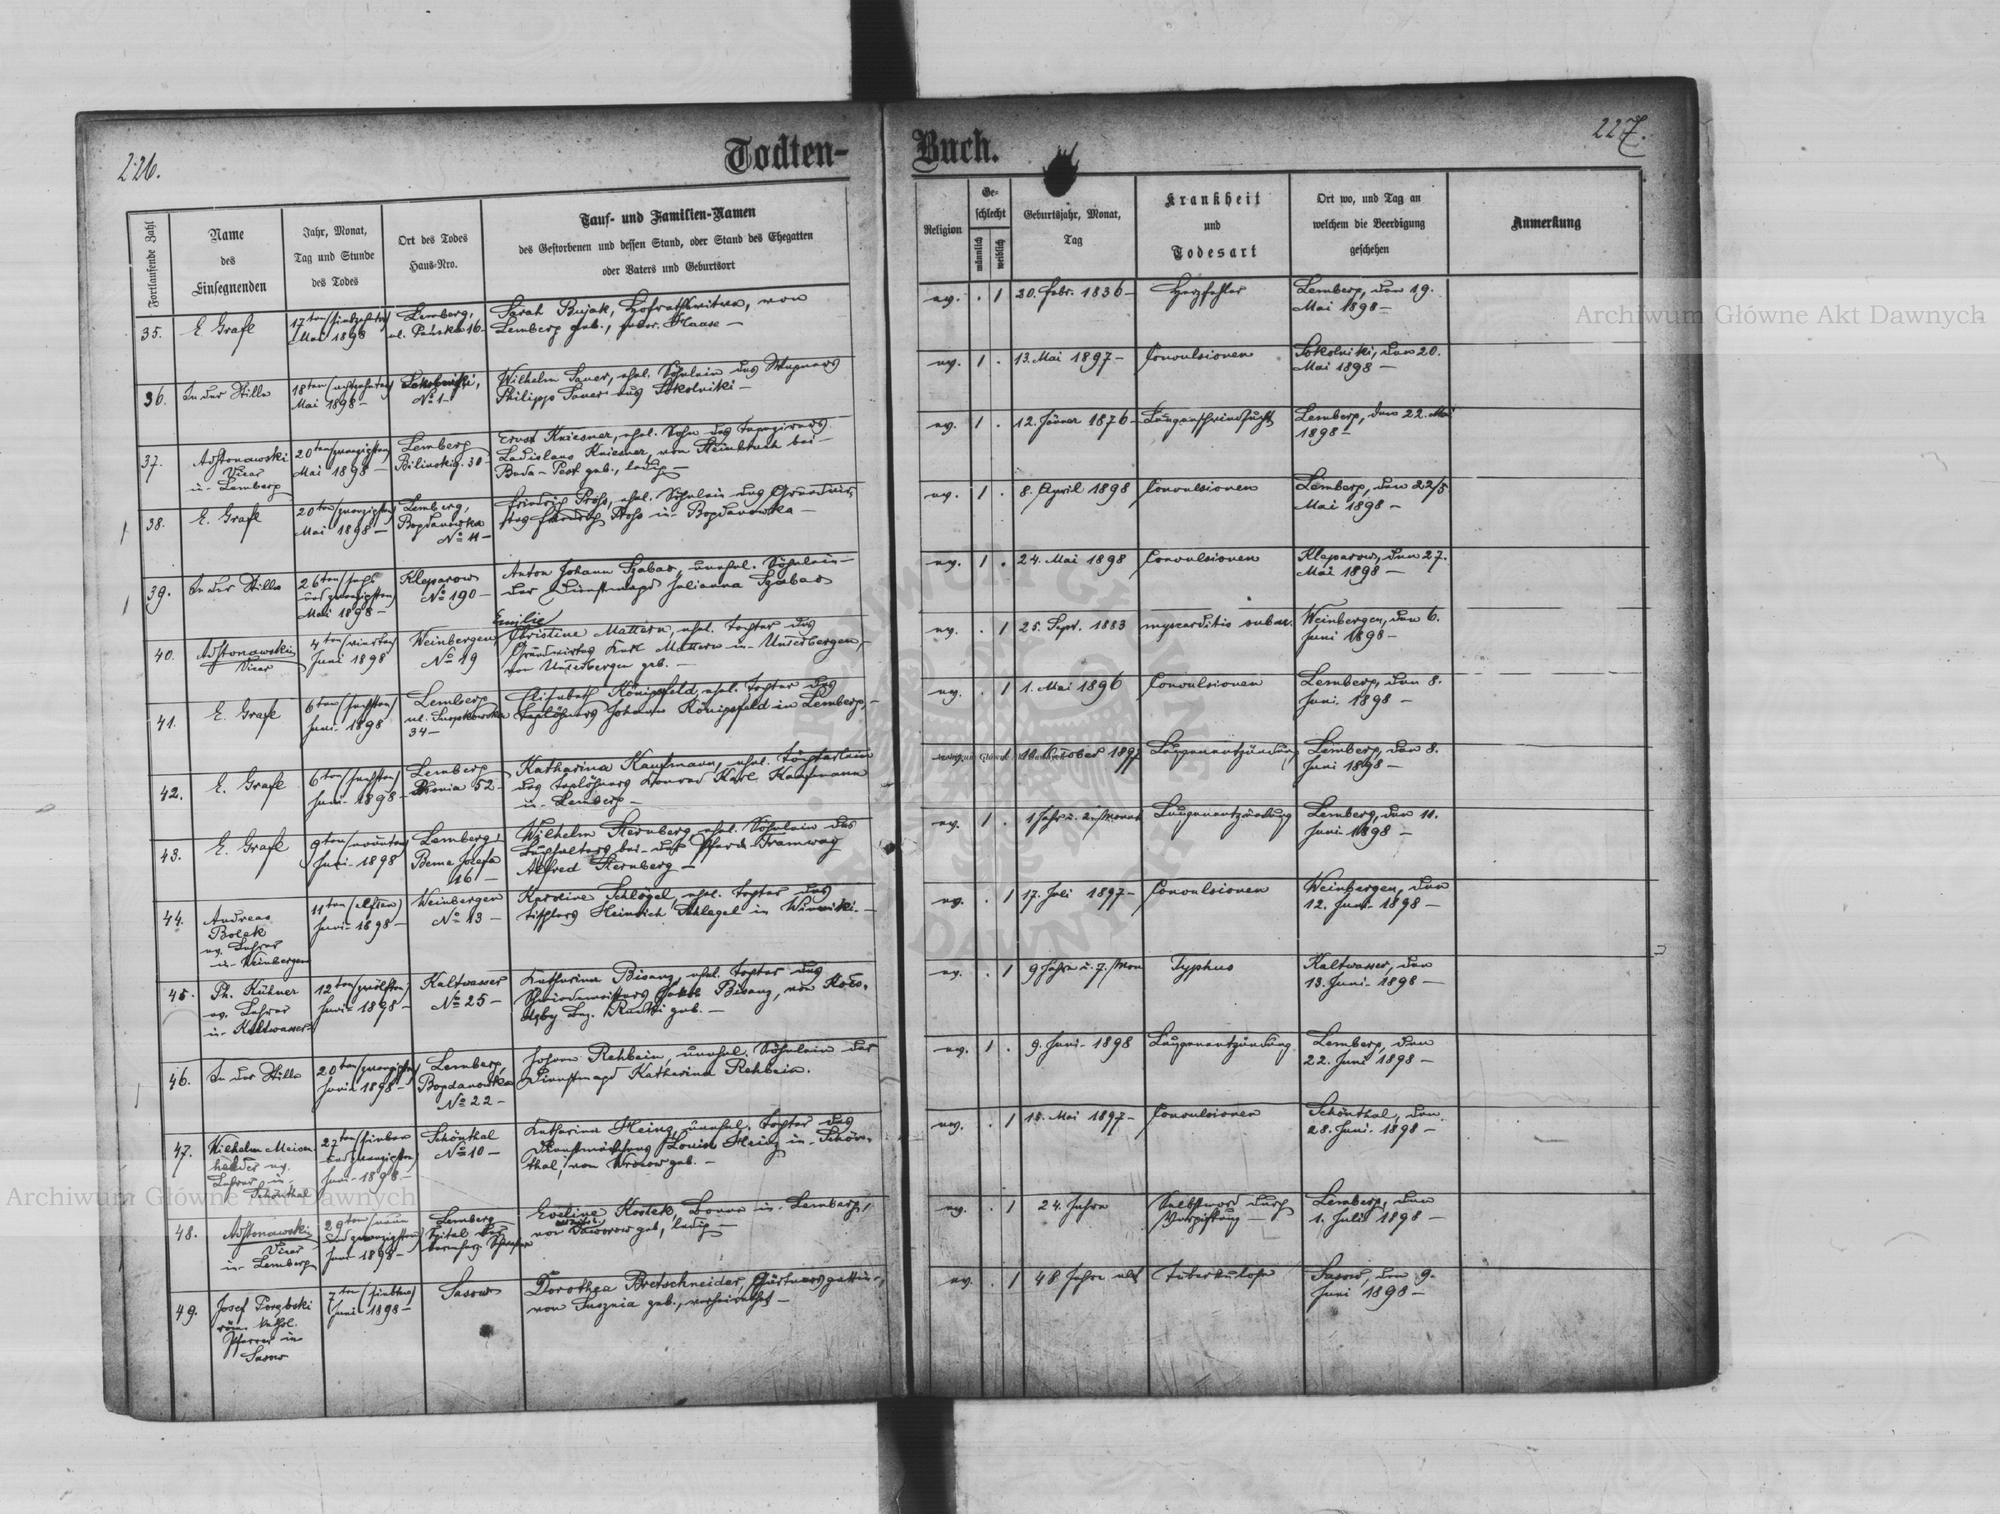 226.
Todten-
Fortlaufende Zahl
Name
des
Einsegnenden
Jahr, Monat,
Tag und Stunde
des Todes
Ort des Todes
Haus-Nro.
Tauf- und Familien-Namen
des Gestorbenen und dessen Stand, oder Stand des Ehegatten
oder Vaters und Geburtsort
35.
E. Grafl
17ten (siebzehnten)
Mai 1898
Lemberg,
ul. Pańska 16-
Sarah Bujak, Hofrathswitwe, von
Lemberg geb., gebor. Haase -
36.
In der Stille
18ten (achtzehnten)
Mai 1898-
Sokolniki,
No 1-
Wilhelm Sauer, ehel. Söhnlein des Wagners
Philipp Sauer aus Sokolniki -
37.
Vicar
in Lemberg
20ten (zwanzigsten)
Mai 1898-
Lemberg
Bilinskig. 30-
Ernst Kniesner, ehel. Sohn des
Ladislaus Kniesner, von Steinbruch bei
Buda-Pest geb., ledig -
38.
E. Grafl
20ten (zwanzigsten)
Mai 1898-
Lemberg,
Bogdanowka
No 11-
Friedrich Pröhs, ehel. Söhnlein des Grundwir-
in Bogdanowka -
39.
In der Stille
26ten (sechs
und zwanzigsten)
Mai 1898-
Kleparow
No 190-
Anton Johann Szabas, unehel. Söhnlein
der Dienstmagd Julianna Szabas
40.
Vicar
4ten (vierten)
Juni 1898
Weinbergen,
No 49
Emilie
Christine Mattern, ehel. Tochter des
Grundwirtes Karl Mattern in Unterbergen,
von Unterbergen geb. -
41.
E. Grafl
6ten (sechsten)
Juni 1898
Lemberg
34-
Elisabeth Königsfeld, ehel. Tochter des
Taglöhners Johann Königsfeld in Lemberg. -
42.
E. Grafl
6ten (sechsten)
Juni 1898-
Lemberg
Błonia 52-
Katharina Kaufmann, ehel. Töchterlein
des Taglöhners Konrad Karl Kaufmann
in Lemberg -
43.
E. Grafl
9ten (neunten)
Juni 1898
Lemberg,
Bema Josefa
16 -
Wilhelm Sternberg, ehel. Söhnlein des
Buchhalters bei der Pferde-Tramway
Alfred Sternberg -
44.
Andreas
Bolek
ev. Lehrer
in Weinbergen
11ten (elften)
Juni 1898-
Weinbergen
No 13-
Karoline Schlögel, ehel. Tochter des
Tischlers Heinrich Schlegel in Winniki. -
45.
Ph. Kühner
ev. Lehrer
in Kaltwasser
12ten (zwölften)
Juni 1898-
Kaltwasser
No 25-
Katharina Bisanz, ehel. Tochter des
Schmiedemeisters Jakob Bisanz, von
Bez. Rudki geb. -
46.
In der Stille
20ten (zwanzigsten)
Juni 1898-
Lemberg,
Bogdanowka
No 22-
Johann Rehbein, unehel. Söhnlein der
Dienstmagd Katharina Rehbein.
47.
ev.
Lehrer in
Schönthal
27ten (sieben
und zwanzigsten)
Juni 1898-
Schönthal
No 10-
Katharina Heinz, unehel. Tochter des
Louise Heinz in Schön-
thal, von Wrocow geb. -
48.
Vicar
in Lemberg
29ten (neun
und zwanzigsten)
Juni 1898-
Lemberg
Spital der
barmherz. Schwestern
Eveline Kostek, Bonne in Lemberg,
von Jaworow geb., ledig -
49.
Josef Porębski
röm. kathol.
Pfarrer in
Sasow
7ten (siebten)
Juni 1898-
Sasow
Dorothea Bretschneider, Gärtnersgattin,
von Susznia geb., verheirathet -
Buch.
227.
Religion
Ge-
schlecht
männlich
weiblich
Geburtsjahr, Monat,
Tag
Krankheit
und
Todesart
Ort wo, und Tag an
welchem die Beerdigung
geschehen
Anmerkung
ev. . 1 20. Febr. 1836- Herzfehler Lemberg, den 19.
Mai 1898-
ev. 1 . 13. Mai 1897- Convulsionen Sokolniki, den 20.
Mai 1898-
ev. 1 . 12. Jänner 1876- Lungenschwindsucht Lemberg, den 22. Mai
1898-
ev. 1 . 8. April 1898 Convulsionen Lemberg, den 22/5
Mai 1898-
ev. 1 . 24. Mai 1898 Convulsionen Kleparow, den 27.
Mai 1898-
ev. . 1 25. Sept. 1883 myocarditis subac. Weinbergen, den 6.
Juni 1898-
ev. . 1 1. Mai 1896 Convulsionen Lemberg, den 8.
Juni 1898-
1 10. October 1897 Lungenentzündung Lemberg, den 8.
Juni 1898-
ev. 1 . 1 Jahr u. 2 Monat Lungenentzündung Lemberg, den 11.
Juni 1898-
ev. . 1 17. Juli 1897- Convulsionen Weinbergen, den
12. Juni 1898-
ev. . 1 9 Jahre u. 7. Mon Typhus Kaltwasser, den
13. Juni 1898-
ev. 1 . 9. Juni 1898 Lungenentzündung Lemberg, den
22. Juni 1898-
ev. . 1 18. Mai 1897- Convulsionen Schönthal, den
28. Juni 1898-
ev. . 1 24 Jahre Selbstmord durch
Vergiftung -
Lemberg, den
1. Juli 1898-
ev. . 1 48 Jahre alt Tuberkulose Sasow, den 9.
Juni 1898-
Archiwum Główne Akt Dawnych
Archiwum Główne Akt Dawnych